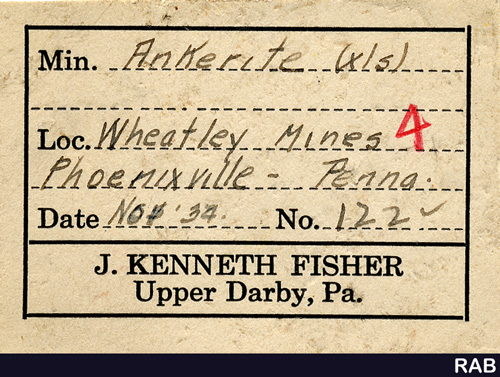 Min. Ankerite (xls)
Loc. Wheatley Mines 4
Phoenixville - Penna.
Date '34. No. 122
J. KENNETH FISHER
Upper Darby, Pa.
RAB